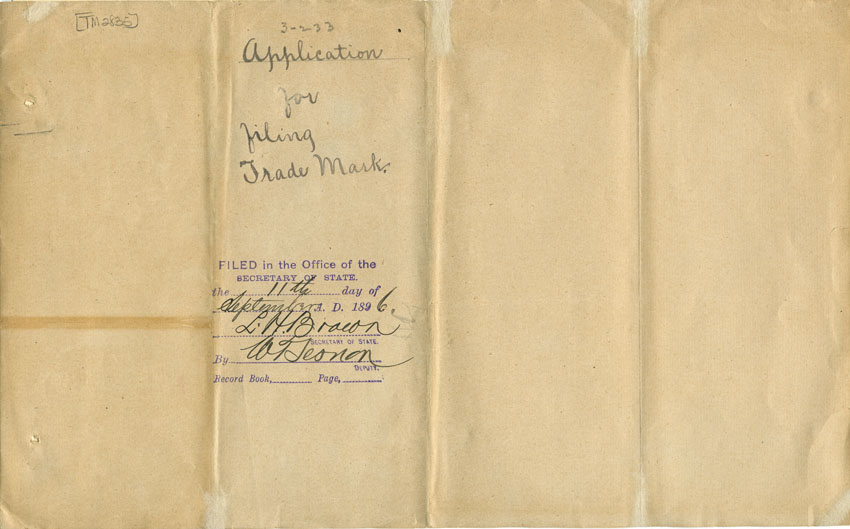 TM2835
3-233
Application
for
filing
Trade Mark.
FILED in the Office of the
SECRETARY OF STATE.
the 11th day of
September A. D. 1896.
L. H. Brown
SECRETARY OF STATE.
By
DEPUTY.
Record Book, Page,